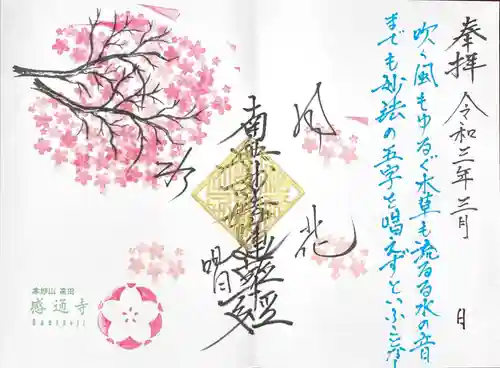 奉拝 令和三年三月 日
吹く風もゆるぐ木草も流るる水の音
までも妙法の五字を唱えずということなし
風
花
南無妙法蓮華経
唱
本妙山 高田
感通寺